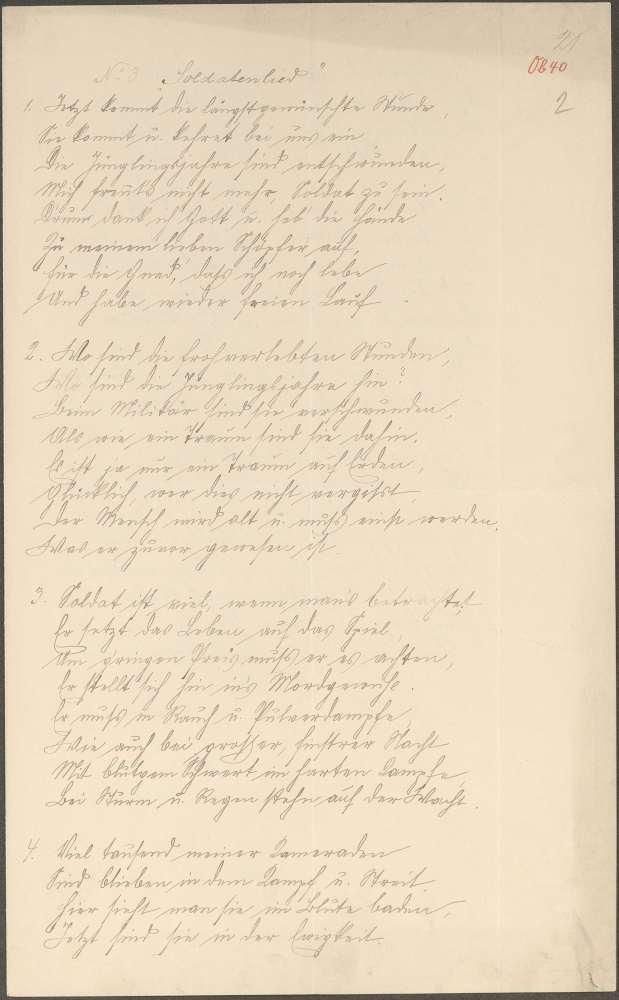 21
Ob 40
2
No 3 „Soldatenlied"
1. Jetzt kommt die längstgewünschte Stunde,
Sie kommt u. kehret bei uns ein,
Die Jünglingsjahre sind entschwunden,
Mich freuts nicht mehr, Soldat zu sein.
Drum dank ich Gott u. heb die Hände
Zu meinem lieben Schöpfer auf,
Für die Gnad, dass ich noch lebe
Und habe wieder freien Lauf.
2. Wo sind die frohverlebten Stunden,
Wo sind die Jünglingsjahre hin?
Beim Militär sind sie verschwunden,
Als wie ein Traum sind sie dahin.
Es ist ja nur ein Traum auf Erden,
Glücklich, wer dies nicht vergisst,
Der Mensch wird alt u. muss einst werden,
Was er zuvor gewesen ist.
3. Soldat ist viel, wenn mans betrachtet,
Er setzt das Leben auf das Spiel,
Um g'ringen Preis muss er es achten,
Er stellt sich hin ins Mordgewühl.
Er muss in Rauch u. Pulverdampfe,
Wie auch bei grosser, finstrer Nacht
Mit blutgem Schwert im harten Kampfe,
Bei Sturm u. Regen stehn auf der Wacht.
4. Viel tausend meiner Kameraden
Sind blieben in dem Kampf u. Streit.
Hier sieht man sie im Blute baden,
Jetzt sind sie in der Ewigkeit.